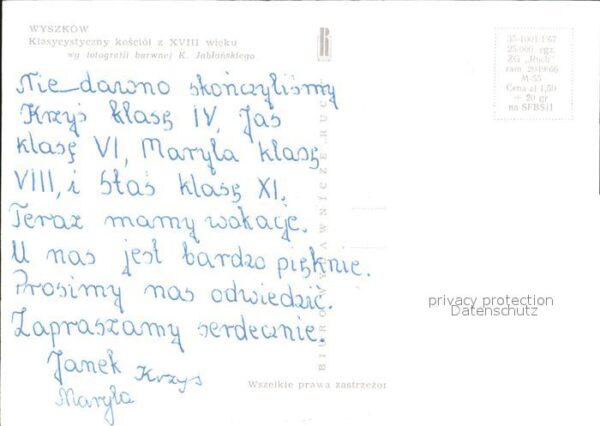 WYSZKÓW
Klasycystyczny kościół z XVIII wieku
wg fotografii barwnej K. Jabłońskiego
35-1001 I/67
25.000 egz.
ZG „Ruch"
zam. 2049/66
M-55
Cena zł 1,50
+ 20 gr
na SFBSiI
Nie dawno skończyliśmy
Krzyś klasę IV, Jaś
klasę VI, Maryla klasę
VIII, i Staś klasę XI.
Teraz mamy wakacje.
U nas jest bardzo pięknie.
Prosimy nas odwiedzić.
Zapraszamy serdecznie.
Janek Krzys
Maryla
BIURO WYDAWNICZE „RUCH"
privacy protection
Datenschutz
Wszelkie prawa zastrzeżon